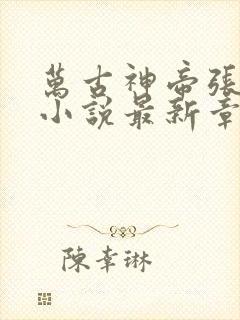 萬古神帝張
小說最新章
陳幸琳